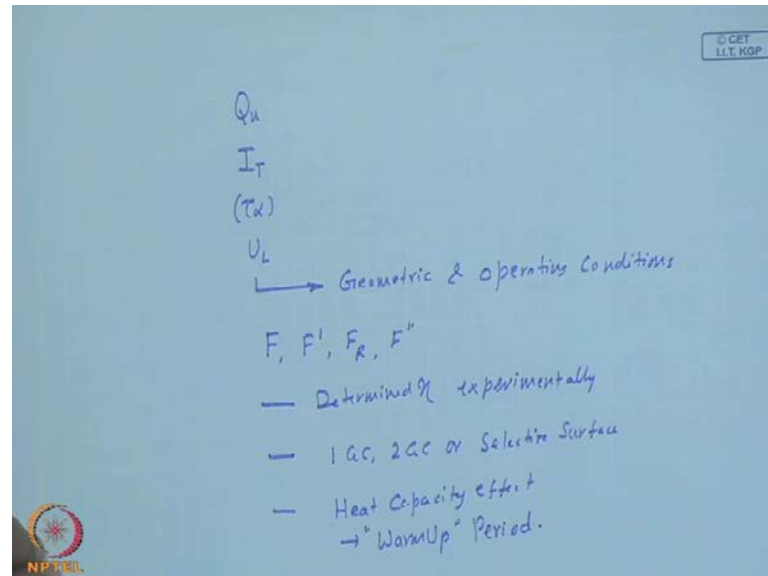 © CET
I.I.T. KGP
Qu
I_T
(τα)
U_L
→ Geometric & operating Conditions
F, F', F_R, F"
— Determined η experimentally
— 1 GC, 2 GC or Selective Surface
— Heat Capacity effect
→ "WarmUp" Period.
NPTEL